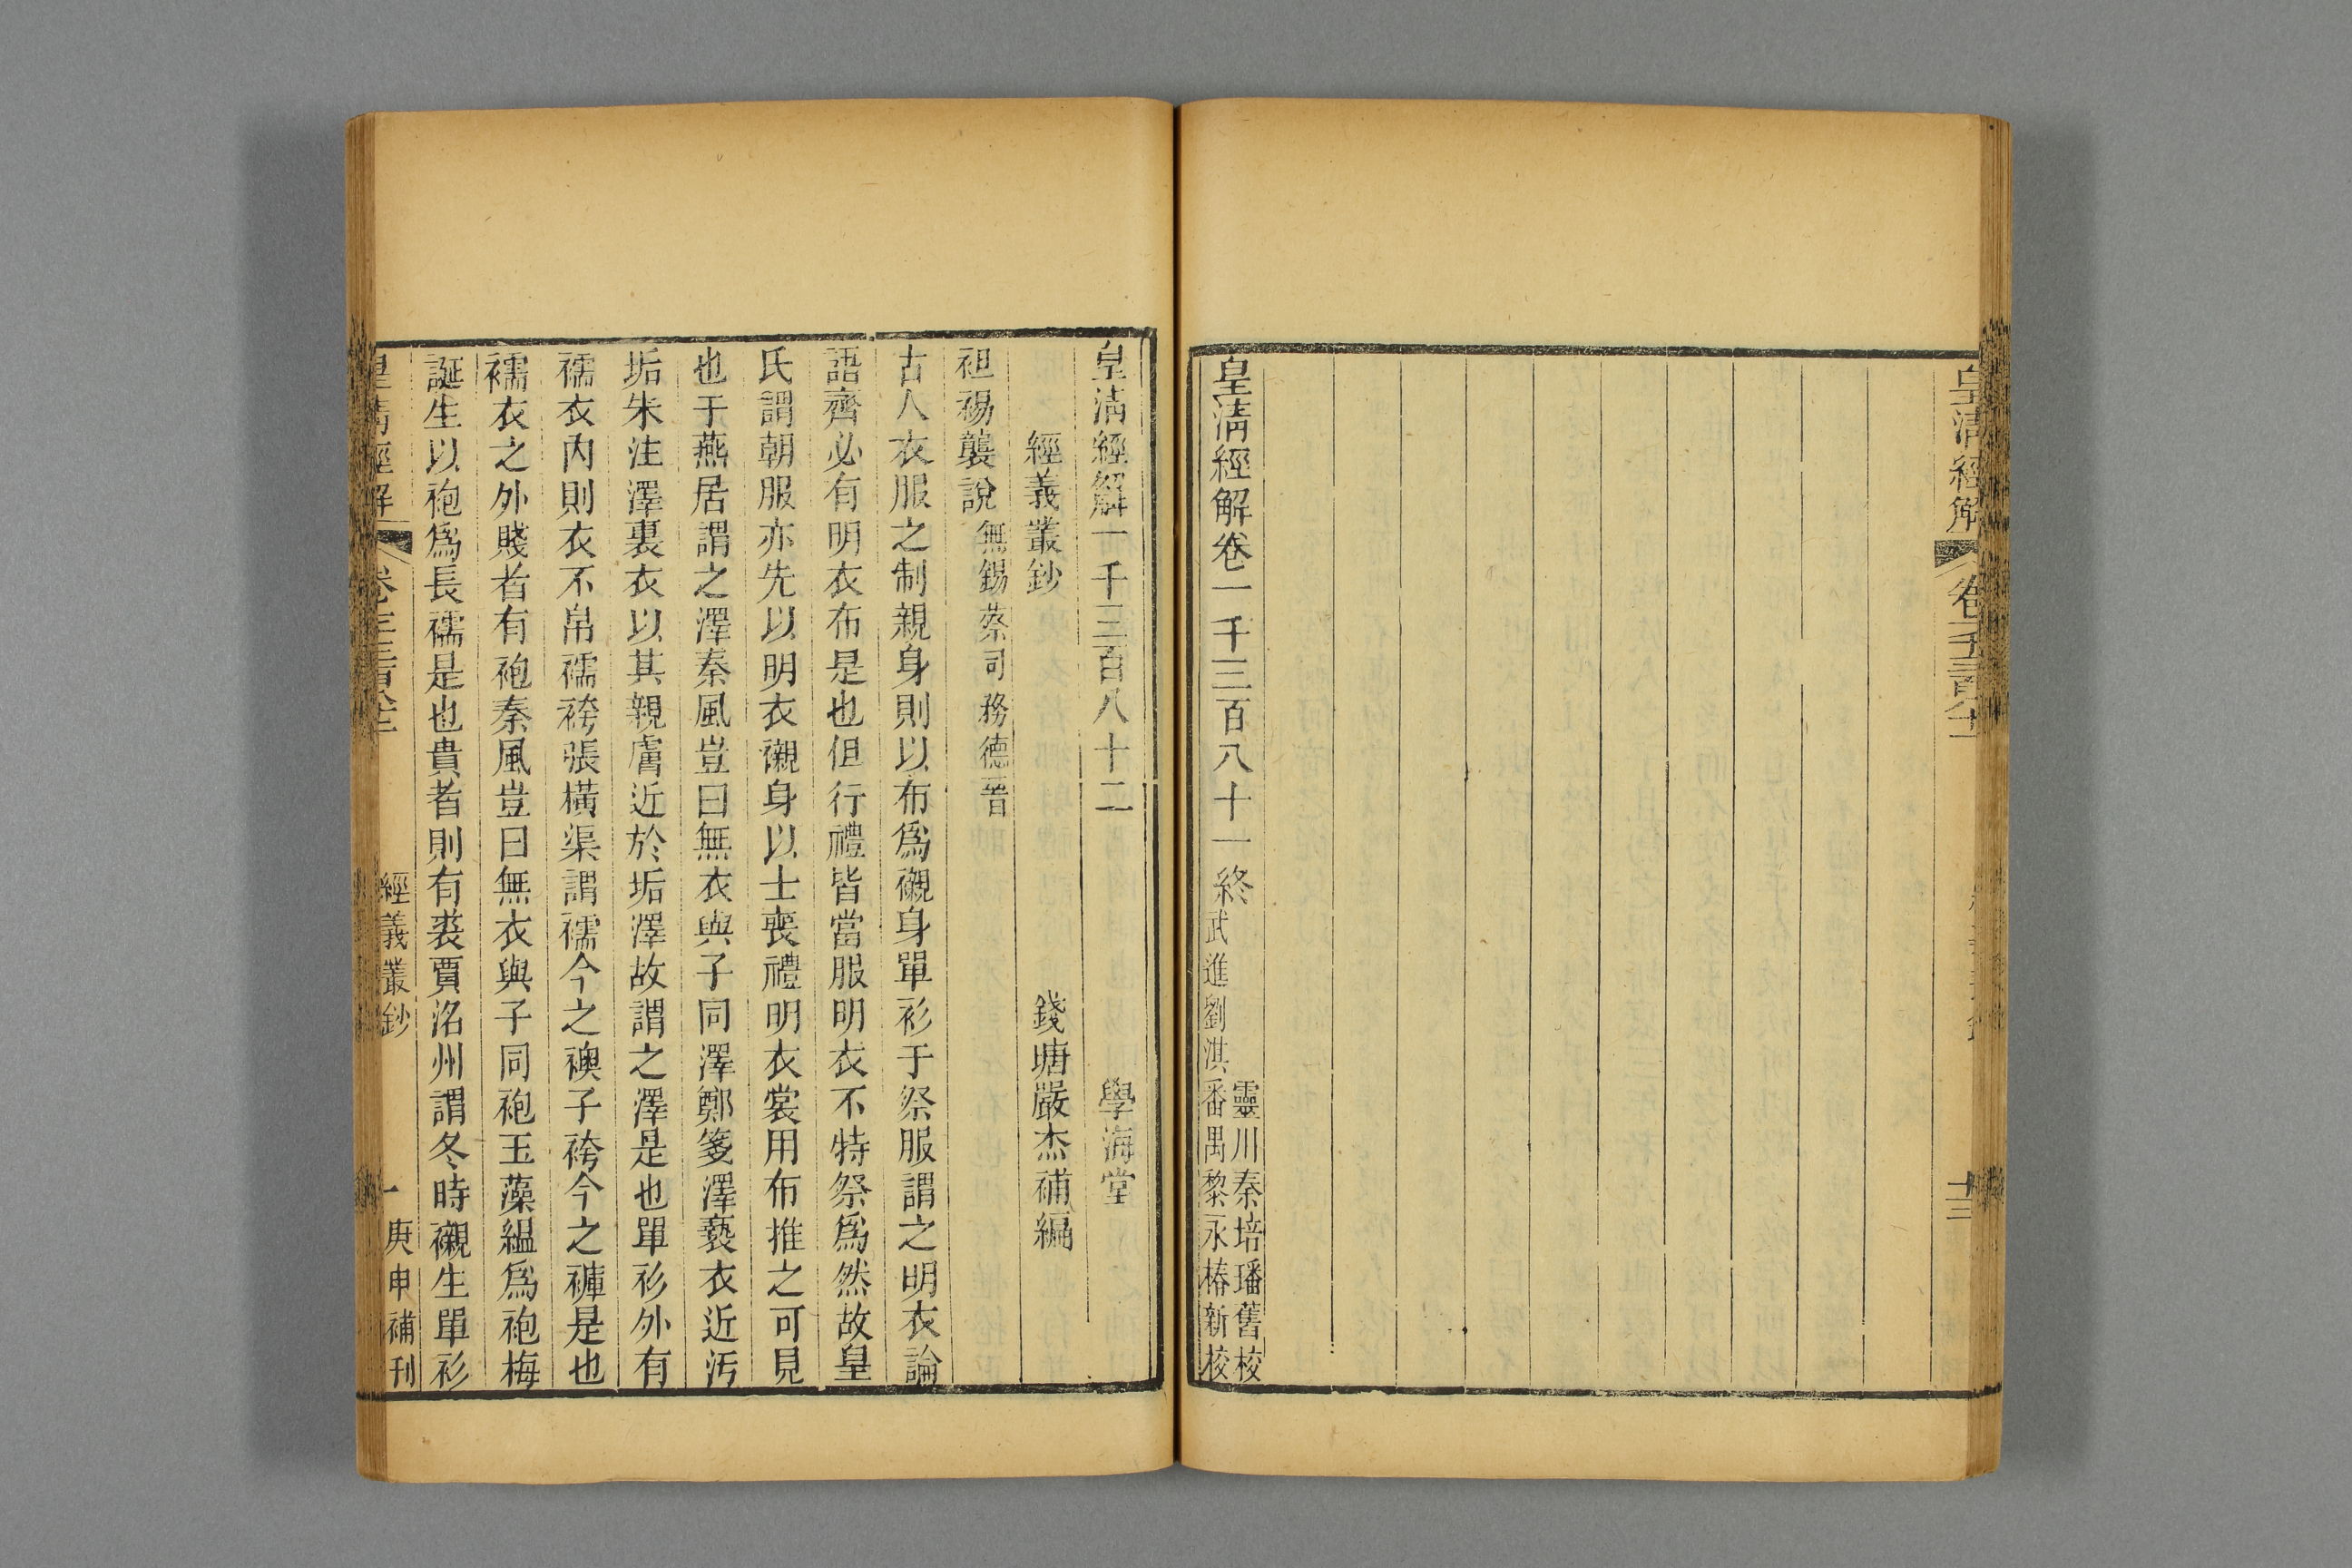 皇清經解 卷一千三百八十一 十三
皇清經解卷一千三百八十一終
靈川秦培璠舊校
武進劉淇番禺黎永椿新校
皇清經解一千三百八十二 學海堂
經義叢鈔 錢塘嚴杰補編
袒裼襲說 無錫蔡司務德晉
古人衣服之制親身則以布爲襯身單衫于祭服謂之明衣論
語齊必有明衣布是也但行禮皆當服明衣不特祭爲然故皇
氏謂朝服亦先以明衣襯身以士喪禮明衣裳用布推之可見
也于燕居謂之澤秦風豈曰無衣與子同澤鄭箋澤褻衣近汚
垢朱注澤裏衣以其親膚近於垢澤故謂之澤是也單衫外有
襦衣內則衣不帛襦袴張橫渠謂襦今之襖子袴今之褲是也
襦衣之外賤者有袍秦風豈曰無衣與子同袍玉藻縕爲袍梅
誕生以袍爲長襦是也貴者則有裘賈洺州謂冬時襯生單衫
皇清經解 卷一千三百八十二 經義叢鈔 一 庚申補刊